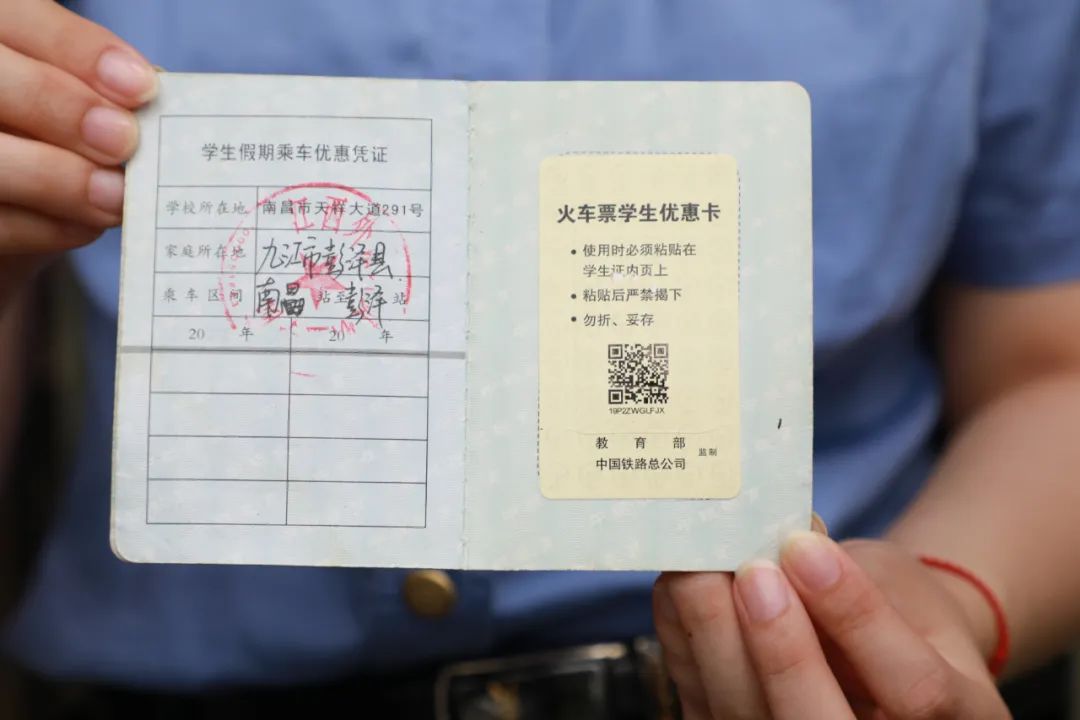 学生假期乘车优惠凭证
学校所在地 南昌市天祥大道291号
家庭所在地 九江市彭泽县
乘车区间 南昌 站至 彭泽 站
20 年 20 年
火车票学生优惠卡
• 使用时必须粘贴在
学生证内页上
• 粘贴后严禁揭下
• 勿折、妥存
19P2ZWGLFJX
教育部
中国铁路总公司
监制